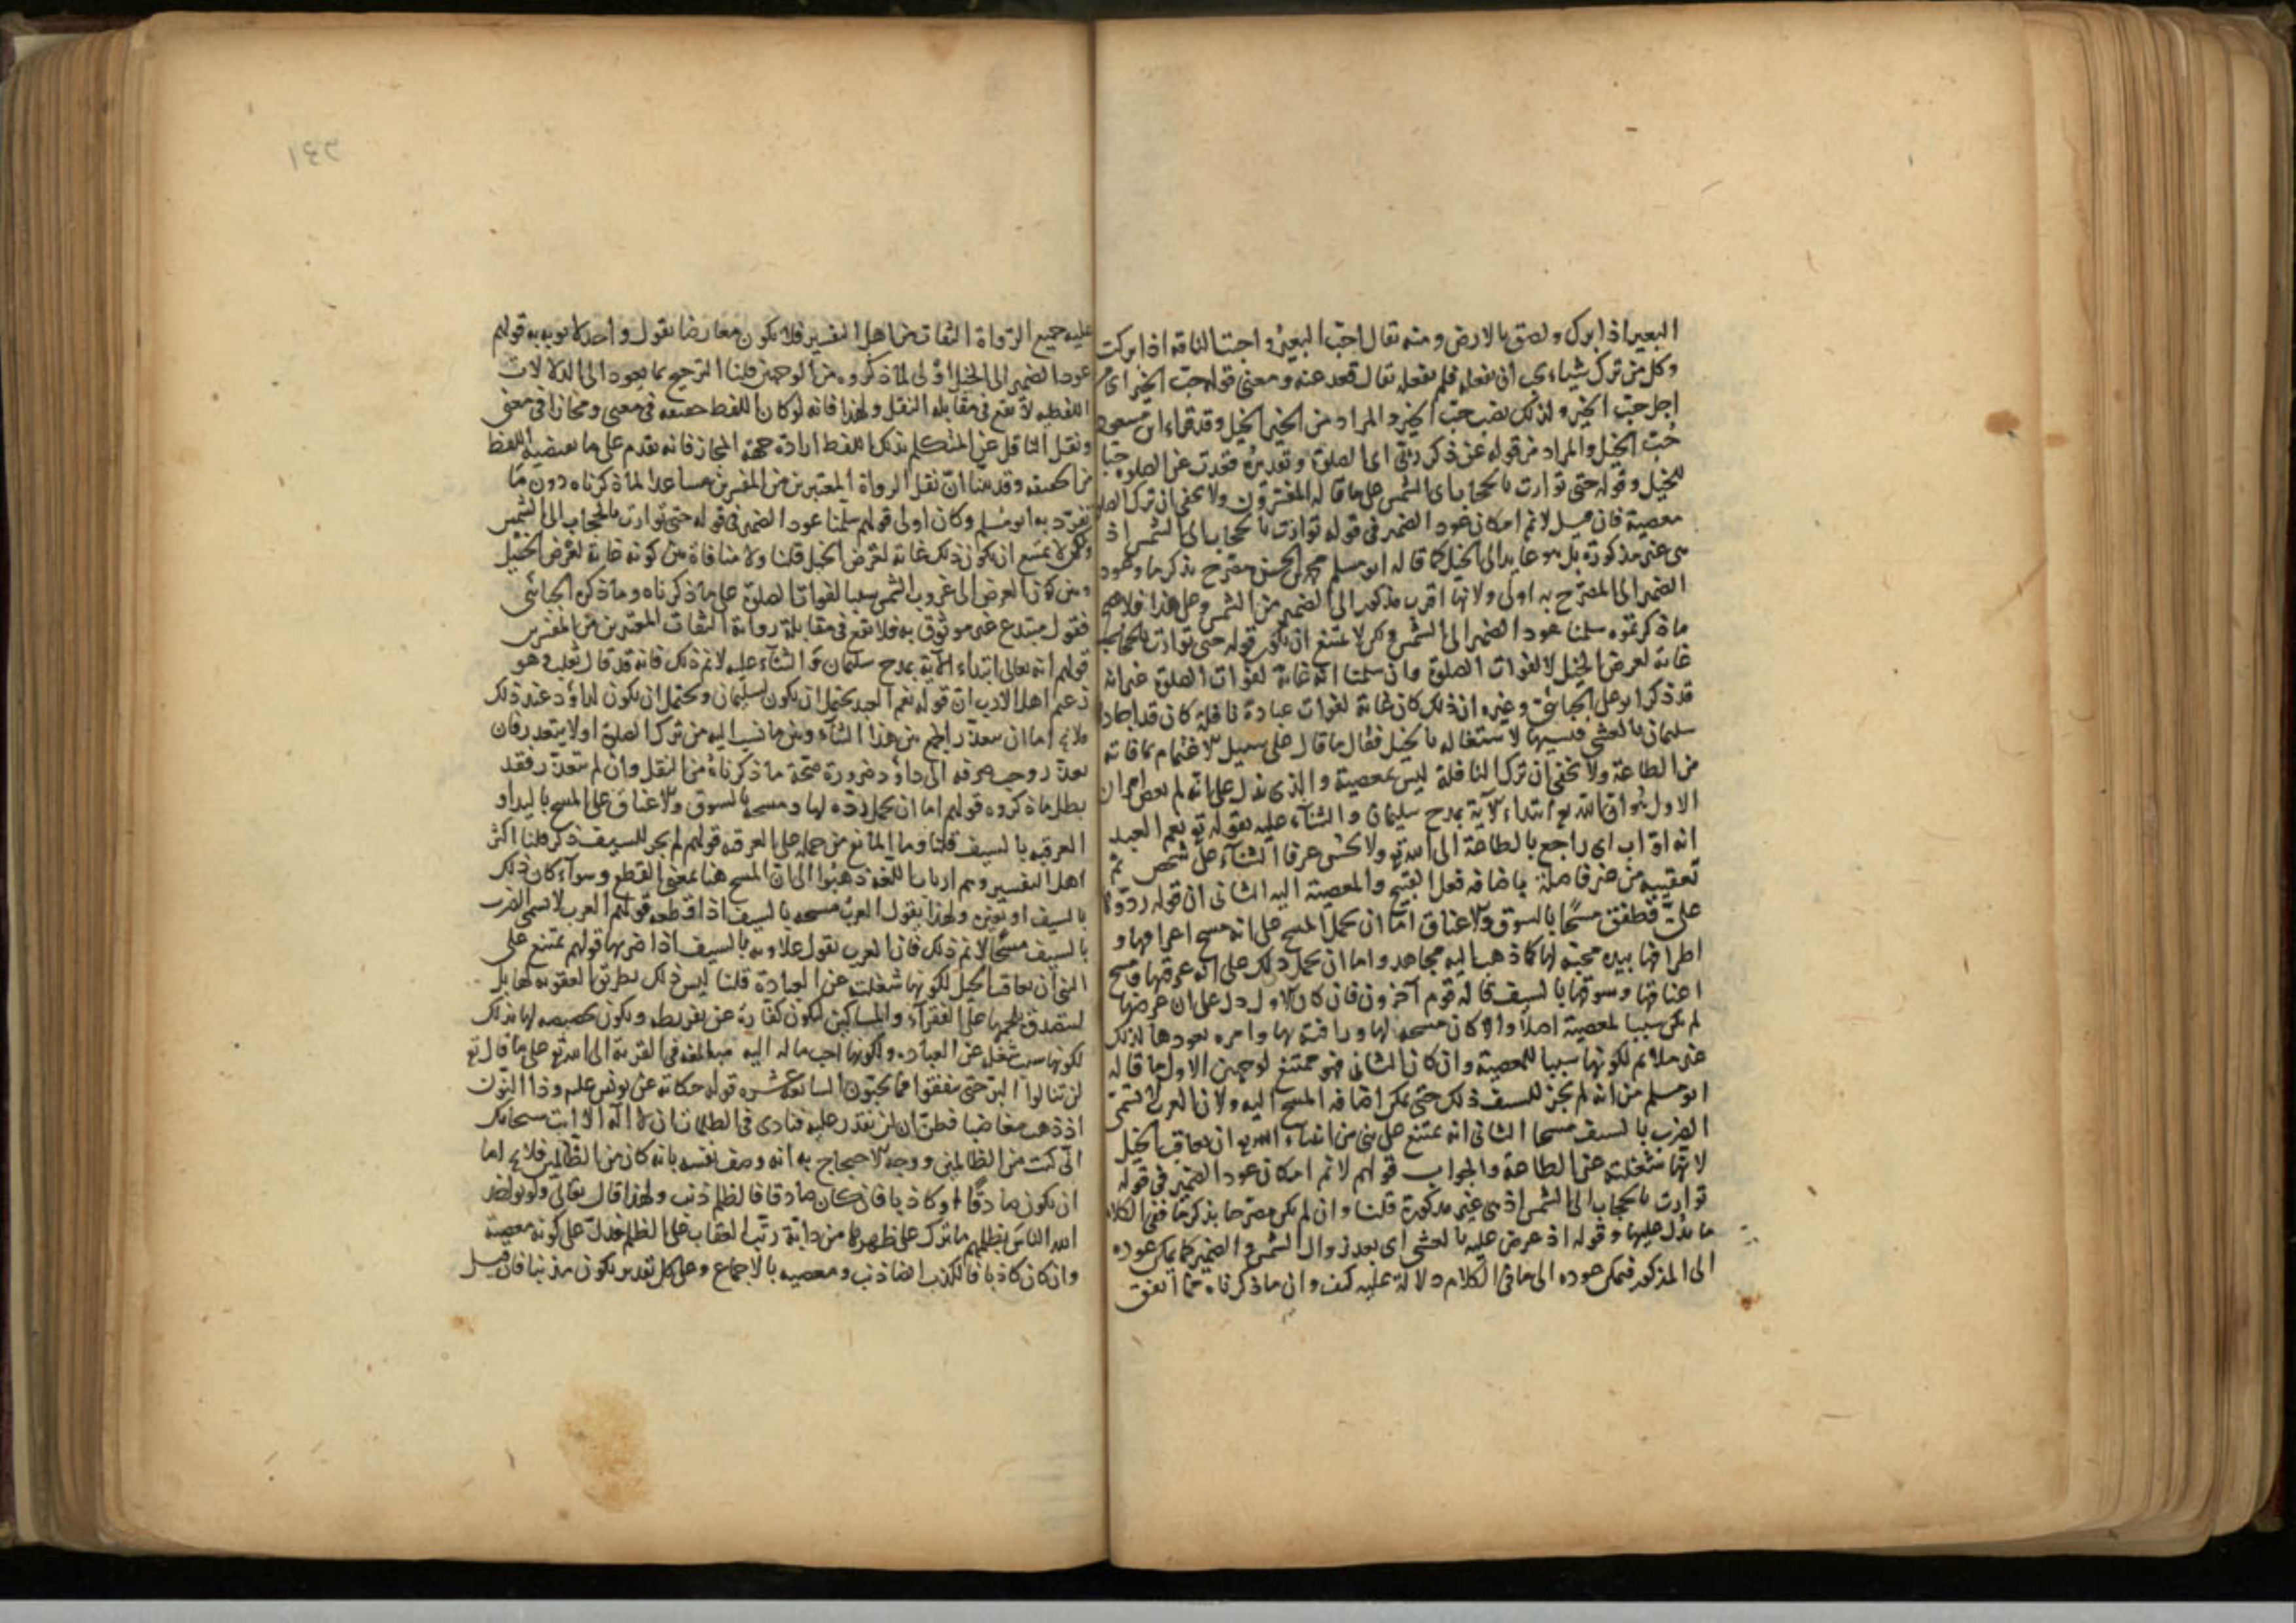 البعير اذا برك ولصق بالارض ومنه تقال احب البعير و احبت الناقة اذا بركت
وكل من ترك شياء اى ان يفعله فلم يفعله تقال قعد عنه ومعنى قوله حب الخير اى
اجل حب الخير ولذلك نصب حب الخير و المراد من الخير الخيل وقد قراء ابن مسعود
حُب الخيل والمراد من قوله عن ذكر ربى اى الصلوة وتقديره قعدت عن الصلوة حبا
للخيل وقوله حتى توارت بالحجاب اى الشمس على ما قاله المفسرون ولا يخفى ان ترك الصلو
معصية فان قيل لا نم امكان عود الضمير فى قوله توارت بالحجاب الى الشمس اذ
هى غير مذكورة بل هو عايد الى الخيل كما قاله ابو مسلم محمد بن الحسن مصرح بذكرها وعود
الضمير الى المصرح به اولى ولانها اقرب مذكور الى الضمير من الشمس وعلى هذا فلا يصح
ما ذكرتموه سلمنا عود الضمير الى الشمس ولكن لا يمتنع ان يكون قوله حتى توارت بالحجاب
غاية لعرض الخيل لا لفوات الصلوة وان سلمنا انه غاية لفوات الصلوة غير انه
قد ذكر ابو على الجبائى وغيره ان ذلك كان غاية لفوات عبادة نافلة كان قد اعتادها
سليمان بالعشى فنسيها لاشتغاله بالخيل فقال ما قال على سبيل الاغتمام بما فاته
من الطاعة ولا يخفى ان ترك النافلة ليس بمعصية والذى يدل على انه لم يعص امران
الاول هو ان الله تع ابتداء الآية بمدح سليمان والثناء عليه بقوله تع نعم العبد
انه اواب اى راجع بالطاعة الى الله تع ولا يحسن عرفا الثناء على شخص ثم
تعقيبه من غير فاصلة باضافة فعل القبيح والمعصية اليه الثانى ان قوله ردوها
علىّ فطفق مسحًا بالسوق والاعناق اما ان يحمل المسح على انه مسح اعرافها و
اطرافها بيده محبة لها كما ذهب اليه مجاهد واما ان يحمل ذلك على انه عرقبها ومسح
اعناقها وسوقها بالسيف كما قاله قوم آخرون فان كان الاول دل على ان عرضها
لم يكن سببا لمعصية اصلا والا كان مسحه لها ورافته بها وامره بعودها لذلك
غير ملائم لكونها سببا للمعصية وان كان الثانى فهو ممتنع لوجهين الاول ما قاله
ابو مسلم من انه لم يجز للسيف ذلك حتى يمكن اضافة المسح اليه ولان العرب لا تسمى
الضرب بالسيف مسحا الثانى انه يمتنع على نبى من انبياء الله تع ان يعاقب الخيل
لانها شغلته عن الطاعة والجواب قولهم لا نم امكان عود الضمير فى قوله
توارت بالحجاب الى الشمس اذ هى غير مذكورة قلنا وان لم يكن مصرحا بذكرها ففى الكلام
ما يدل عليها وقوله اذ عرض عليه بالعشى اى بعد زوال الشمس والضمير كما يمكن عوده
الى المذكور فيمكن عوده الى ما فى الكلام دلالة عليه كيف وان ما ذكرناه مما اتفق
٢٤١
عليه جميع الرواة الثقات من اهل التفسير فلا يكون معارضا بقول واحد لا يوبه به قولهم
عود الضمير الى الخيل اولى لما ذكروه من الوجهين قلنا الترجيح بما يعود الى الدلالات
اللفظية لا يقع فى مقابلة النقل ولهذا فانه لو كان اللفظ حقيقة فى معنى ومجازا فى معنى
ونقل الناقل عن المتكلم بذلك اللفظ ارادة جهة المجاز فانه يقدم على ما يقتضيه اللفظ
من الحقيقة وقد بينا ان نقل الرواة المعتبرين من المفسرين مساعدا لما ذكرناه دون ما
تفرد به ابو مسلم وكان اولى قولهم سلمنا عود الضمير فى قوله حتى توارت بالحجاب الى الشمس
ولكن لا يمتنع ان يكون ذلك غاية لعرض الخيل قلنا ولا منافاة بين كونه غاية لعرض الخيل
وبين كون العرض الى غروب الشمس سببا لفوات الصلوة على ما ذكرناه وما ذكره الجبائى
فقول مبتدع غير موثوق به فلا يقع فى مقابلة رواية الثقات المعتبرين من المفسرين
قولهم انه تعالى ابتداء الآية بمدح سليمان و الثناء عليه لا نم ذلك فانه قد قال ثعلب وهو
زعيم اهل الادب ان قوله نعم العبد يحتمل ان يكون لسليمان ويحتمل ان يكون لداؤد عند ذلك
فلا يخ اما ان يتعذر الجمع بين هذا الثناء وبين ما نسب اليه من ترك الصلوة اولا يتعذر فان
تعذر وجب صرفه الى داؤد ضرورة صحة ما ذكرناه من النقل وان لم يتعذر فقد
بطل ما ذكروه قولهم اما ان يحمل رده لها ومسحه بالسوق والاعناق على المسح باليد او
العرقبة بالسيف قلنا وما المانع من حمله على العرقبة قولهم لم يجر للسيف ذكر قلنا اكثر
اهل التفسير وهم ارباب اللغة ذهبوا الى ان المسح هنا بمعنى القطع وسواء كان ذلك
بالسيف او بغيره ولهذا يقول العرب مسحه بالسيف اذا قطعه قولهم العرب لا تسمى الضرب
بالسيف مسحًا لا نم ذلك فان العرب تقول علاوته بالسيف اذا ضربها قولهم يمتنع على
النبى ان يعاقب الخيل لكونها شغلت عن العبادة قلنا ليس ذلك بطريق العقوبة لها بل
ليتصدق بلحمها على الفقراء والمساكين ليكون كفارة عن تفريطه ويكون تخصيصه لها بذلك
لكونها سبب شغله عن العبادة ولكونها احب ماله اليه مبالغة فى القربة الى الله تع على ما قال تع
لن تنالوا البر حتى تنفقوا مما تحبون السابعة عشره قوله حكاية عن يونس علم وذا النون
اذ ذهب مغاضبا فظن ان لن نقدر عليه فنادى فى الظلمات ان لا اله الا انت سبحانك
انى كنت من الظالمين ووجه الاحتجاج به انه وصف نفسه بانه كان من الظالمين فلا يخ اما
ان يكون صادقًا او كاذبا فان كان صادقا فالظلم ذنب ولهذا قال تعالى ولو يؤاخذ
الله الناس بظلمهم ما ترك على ظهرها من دابة رتب العقاب على الظلم فدل على كونه معصية
وان كان كاذبا فالكذب ايضا ذنب ومعصيه بالاجماع وعلى كل تقدير يكون مذنبا فان قيل